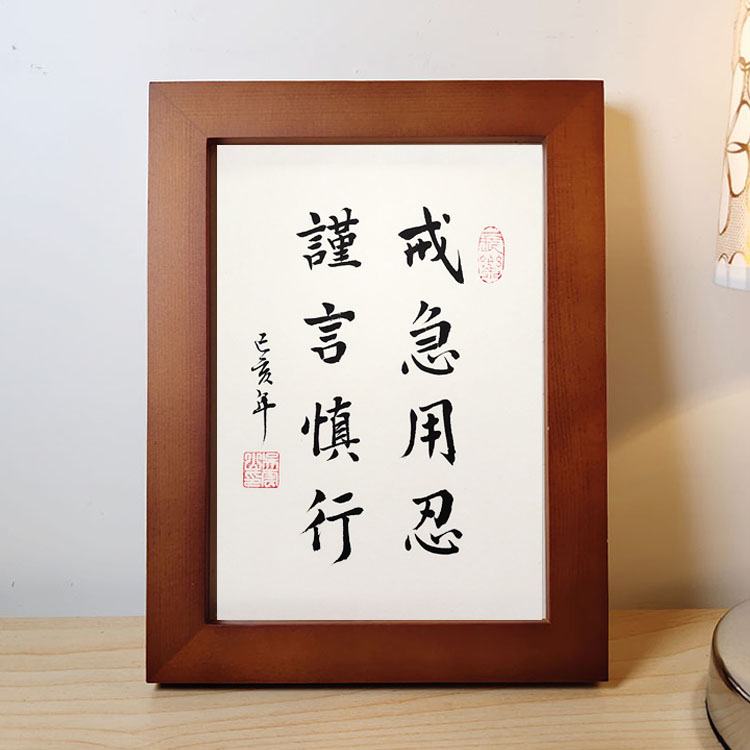 戒急用忍
謹言慎行
己亥年